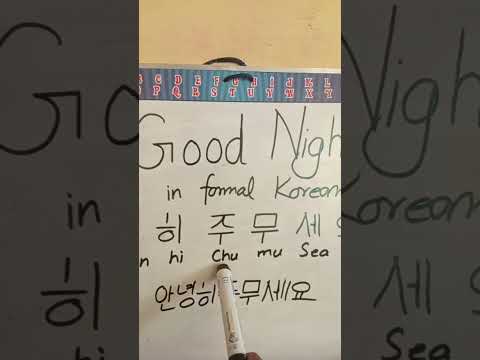 C D E F G H I J K L
P Q R S T U V W X Y
Good Nigh
in formal Korean
히 주 무 세
n hi Chu mu Sea
안녕히주무세요